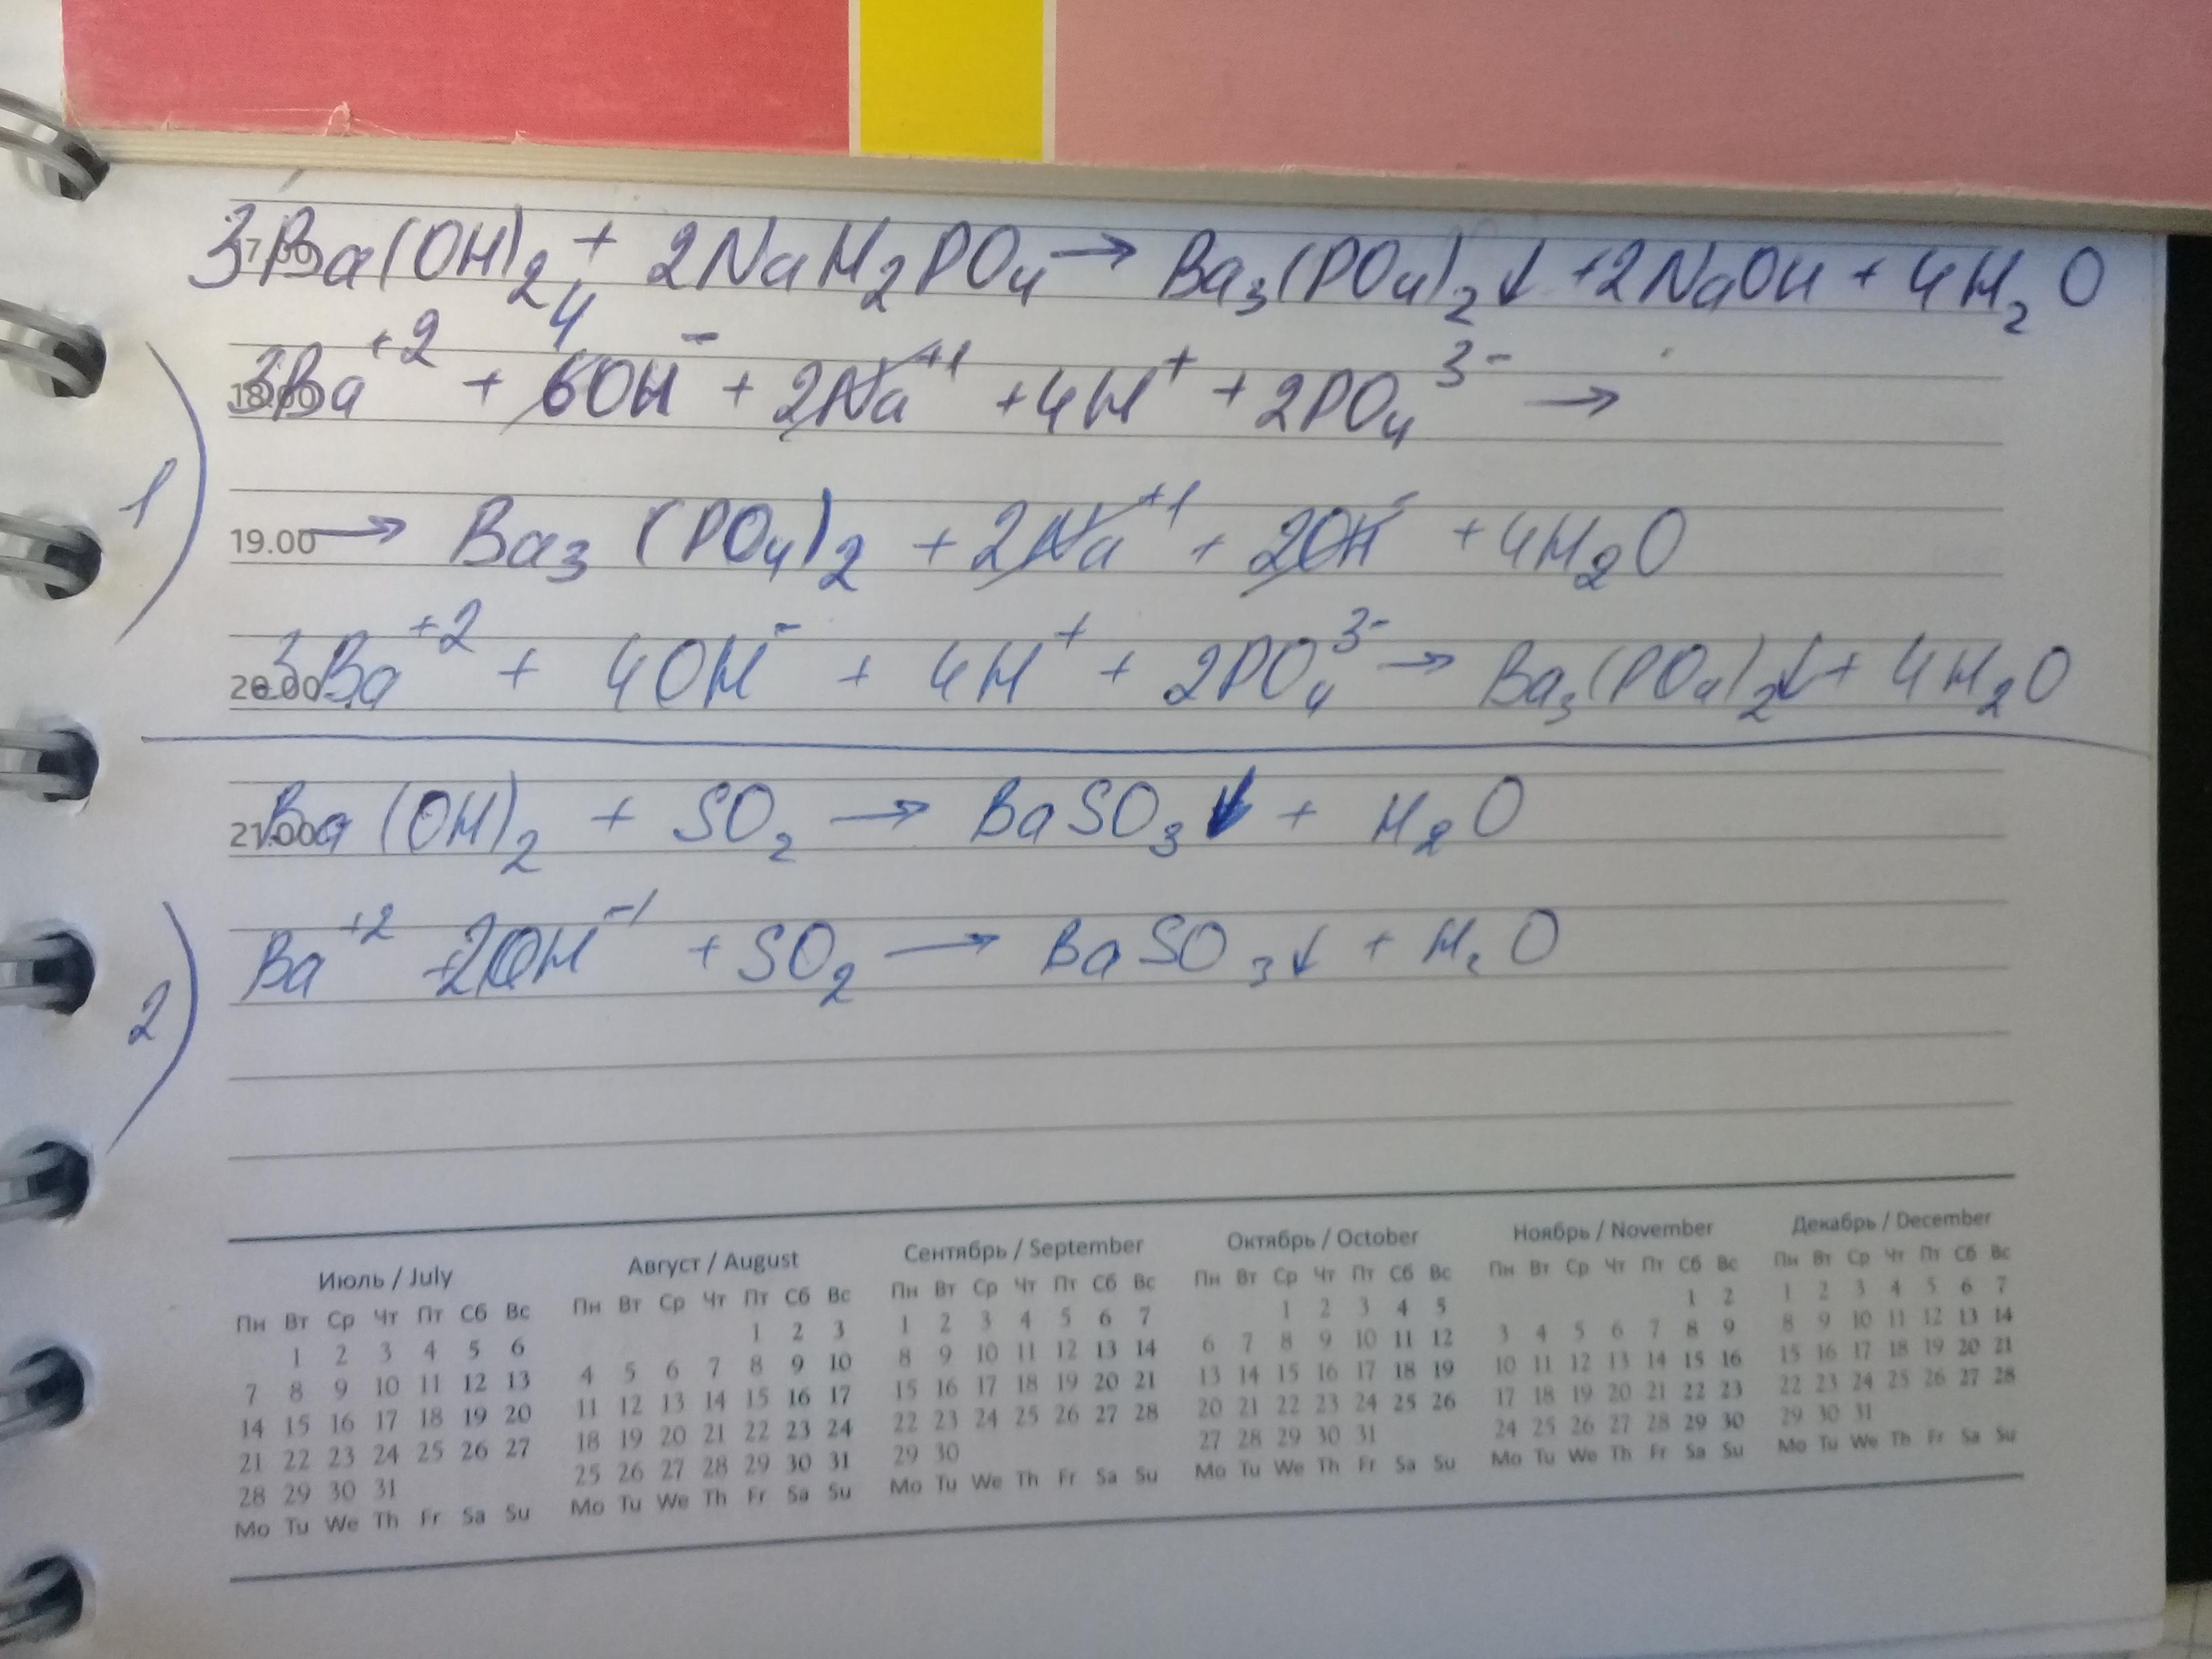 3Ba(OH)₂ + 2NaH₂PO₄ → Ba₃(PO₄)₂↓ + 2NaOH + 4H₂O
4
18.00 3Ba⁺² + 6OH⁻ + 2Na⁺¹ + 4H⁺ + 2PO₄³⁻ →
1)
19.00 → Ba₃(PO₄)₂ + 2Na⁺¹ + 2OH⁻ + 4H₂O
20.00 3Ba⁺² + 4OH⁻ + 4H⁺ + 2PO₄³⁻ → Ba₃(PO₄)₂↓ + 4H₂O
21.00 Ba(OH)₂ + SO₂ → BaSO₃↓ + H₂O
2)
Ba⁺² + 2OH⁻¹ + SO₂ → BaSO₃↓ + H₂O
Июль / July
Пн Вт Ср Чт Пт Сб Вс
1 2 3 4 5 6
7 8 9 10 11 12 13
14 15 16 17 18 19 20
21 22 23 24 25 26 27
28 29 30 31
Mo Tu We Th Fr Sa Su
Август / August
Пн Вт Ср Чт Пт Сб Вс
1 2 3
4 5 6 7 8 9 10
11 12 13 14 15 16 17
18 19 20 21 22 23 24
25 26 27 28 29 30 31
Mo Tu We Th Fr Sa Su
Сентябрь / September
Пн Вт Ср Чт Пт Сб Вс
1 2 3 4 5 6 7
8 9 10 11 12 13 14
15 16 17 18 19 20 21
22 23 24 25 26 27 28
29 30
Mo Tu We Th Fr Sa Su
Октябрь / October
Пн Вт Ср Чт Пт Сб Вс
1 2 3 4 5
6 7 8 9 10 11 12
13 14 15 16 17 18 19
20 21 22 23 24 25 26
27 28 29 30 31
Mo Tu We Th Fr Sa Su
Ноябрь / November
Пн Вт Ср Чт Пт Сб Вс
1 2
3 4 5 6 7 8 9
10 11 12 13 14 15 16
17 18 19 20 21 22 23
24 25 26 27 28 29 30
Mo Tu We Th Fr Sa Su
Декабрь / December
Пн Вт Ср Чт Пт Сб Вс
1 2 3 4 5 6 7
8 9 10 11 12 13 14
15 16 17 18 19 20 21
22 23 24 25 26 27 28
29 30 31
Mo Tu We Th Fr Sa Su